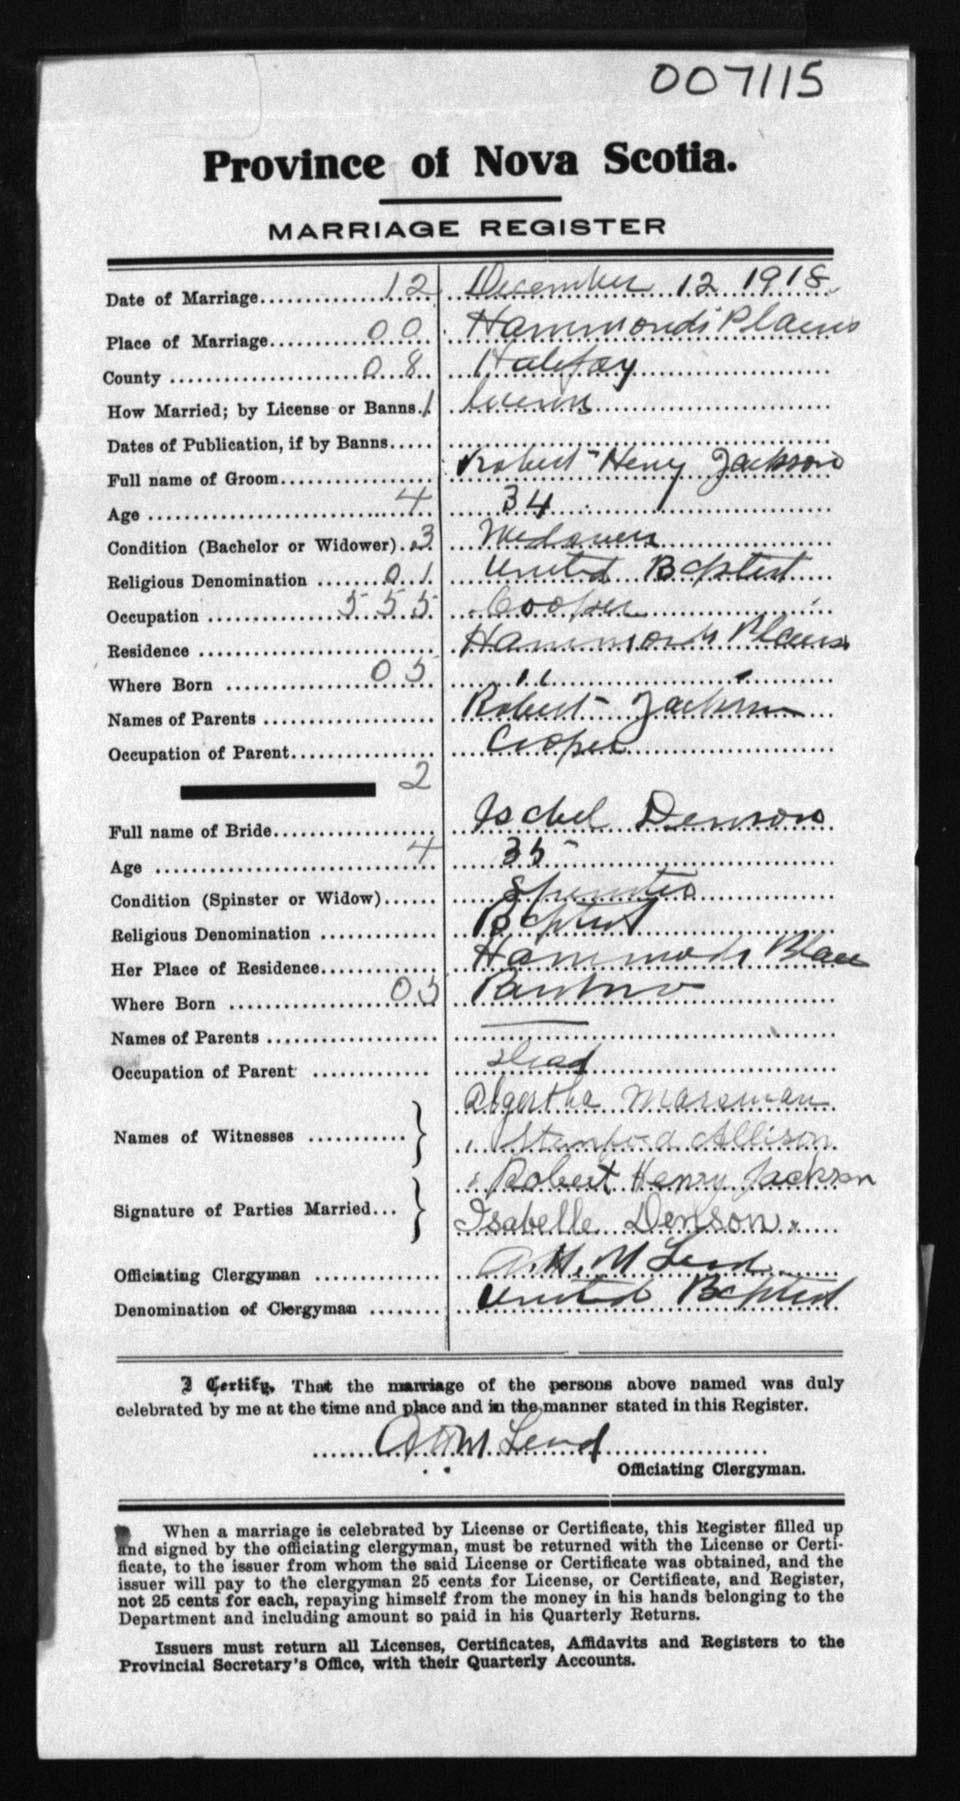 007115
Province of Nova Scotia.
MARRIAGE REGISTER
Date of Marriage 12 December 12 1918
Place of Marriage 00 Hammonds Plains
County 08 Halifax
How Married; by License or Banns. 1
Dates of Publication, if by Banns.....
Full name of Groom Robert Henry Jackson
Age 4 34
Condition (Bachelor or Widower). 3 Widower
Religious Denomination 01 United Baptist
Occupation 555 Cooper
Residence Hammonds Plains
Where Born 05 " "
Names of Parents Robert Jackson
Occupation of Parent Cooper
2
Full name of Bride Isabel Denson
Age 4 35
Condition (Spinster or Widow) Spinster
Religious Denomination Baptist
Her Place of Residence Hammonds Plain
Where Born 05
Names of Parents
Occupation of Parent Dead
Names of Witnesses Algertha Marsman
Stanford Allison
Signature of Parties Married... Robert Henry Jackson
Isabelle Denson.
Officiating Clergyman A. H. McLeod
Denomination of Clergyman United Baptist
I Certify, That the marriage of the persons above named was duly
celebrated by me at the time and place and in the manner stated in this Register.
A H McLeod
Officiating Clergyman.
When a marriage is celebrated by License or Certificate, this Register filled up
and signed by the officiating clergyman, must be returned with the License or Certi-
ficate, to the issuer from whom the said License or Certificate was obtained, and the
issuer will pay to the clergyman 25 cents for License, or Certificate, and Register,
not 25 cents for each, repaying himself from the money in his hands belonging to the
Department and including amount so paid in his Quarterly Returns.
Issuers must return all Licenses, Certificates, Affidavits and Registers to the
Provincial Secretary's Office, with their Quarterly Accounts.